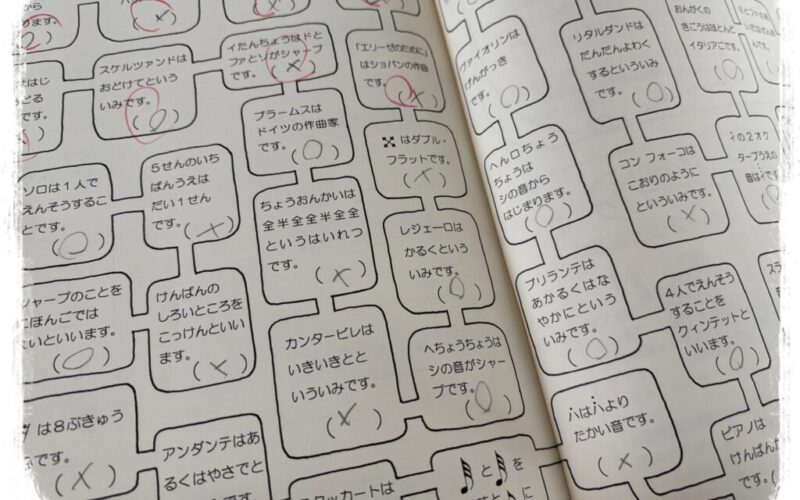 から
ります。
スケルツァンドは
おどけてという
いみです。
(○)
イたんちょうはドと
ファとソがシャープ
です。(×)
「エリーゼのために」
はショパンの作曲
です。
(×)
ブラームスは
ドイツの作曲家
です。(○)
𝄪はダブル・
フラットです。
(×)
ソロは1人で
えんそうするこ
とです。
(○)
5せんのいち
ばんうえは
だい1せん
です。(×)
ちょうおんかいは
全半全全半全全
というはいれつ
です。
(×)
レジェーロは
かるくという
いみです。
(○)
シャープのことを
にほんごでは
といいます。
(○)
けんばんの
しろいところを
こっけんといい
ます。
(×)
カンタービレは
いきいきとと
いういみです。
(×)
へちょうちょうは
シの音がシャー
プです。(○)
は8ぶきゅう
です。
(×)
アンダンテはあ
るくはやさでと
スタッカートは
と を
ヴァイオリンは
げんがっき
です。
(○)
リタルダンドは
だんだんよわく
するといういみ
です。
(○)
おんがくの
きごうはほとんど
イタリアごです。
(○)
へんロちょう
ちょうは
シの音から
はじまります。
(○)
コン フォーコは
こおりのように
といういみです。
(×)
の2オク
ターブうえの
音は です。
ブリランテは
あかるくはな
やかにという
いみです。
(○)
4人でえんそう
することを
クィンテットと
いいます。
(○)
ハはハより
たかい音です。
(×)
ピアノは
けんばん